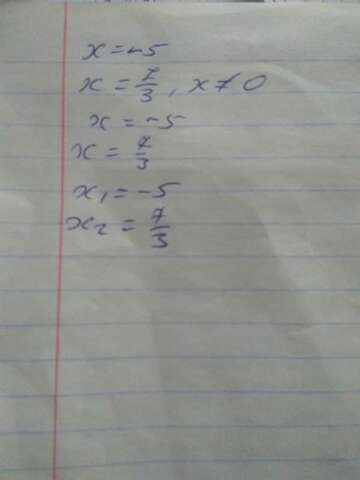 x = -5
x = 7/3, x ≠ 0
x = -5
x = 7/3
x₁ = -5
x₂ = 7/3